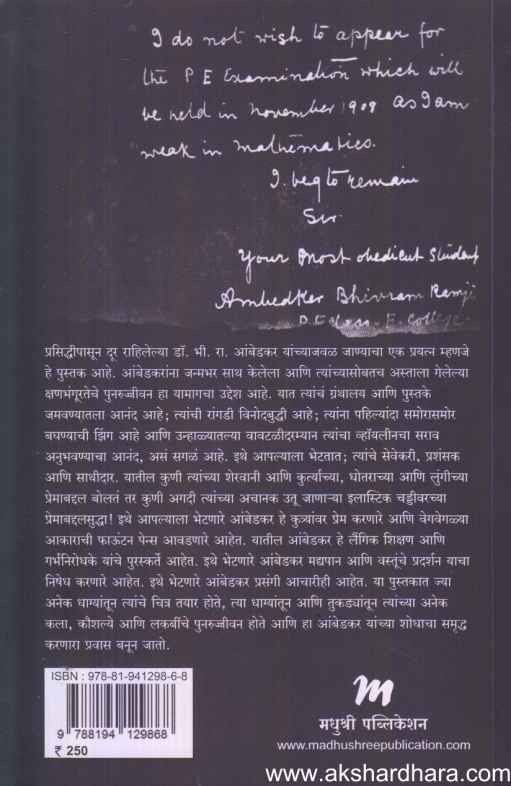 I do not wish to appear for
the P E Examination which will
be held in November 1909 as I am
weak in mathematics.
I beg to remain
Sir
Your most obedient Student
Ambedkar Bhivram Ramji
P.E Class. E. College
प्रसिद्धीपासून दूर राहिलेल्या डॉ. भी. रा. आंबेडकर यांच्याजवळ जाण्याचा एक प्रयत्न म्हणजे
हे पुस्तक आहे. आंबेडकरांना जन्मभर साथ केलेला आणि त्यांच्यासोबतच अस्ताला गेलेल्या
क्षणभंगूरतेचे पुनरुज्जीवन हा यामागचा उद्देश आहे. यात त्यांचं ग्रंथालय आणि पुस्तके
जमवण्यातला आनंद आहे; त्यांची रांगडी विनोदबुद्धी आहे; त्यांना पहिल्यांदा समोरासमोर
बघण्याची झिंग आहे आणि उन्हाळ्यातल्या वावटळीदरम्यान त्यांचा व्हॉयलीनचा सराव
अनुभवण्याचा आनंद, असं सगळं आहे. इथे आपल्याला भेटतात; त्यांचे सेवेकरी, प्रशंसक
आणि साथीदार. यातील कुणी त्यांच्या शेरवानी आणि कुर्त्याच्या, धोतराच्या आणि लुंगीच्या
प्रेमाबद्दल बोलतं तर कुणी अगदी त्यांच्या अचानक उतू जाणाऱ्या इलास्टिक चड्डीवरच्या
प्रेमाबद्दलसुद्धा! इथे आपल्याला भेटणारे आंबेडकर हे कुत्र्यांवर प्रेम करणारे आणि वेगवेगळ्या
आकाराची फाऊंटन पेन्स आवडणारे आहेत. यातील आंबेडकर हे लैंगिक शिक्षण आणि
गर्भनिरोधके यांचे पुरस्कर्ते आहेत. इथे भेटणारे आंबेडकर मद्यपान आणि वस्तूंचे प्रदर्शन याचा
निषेध करणारे आहेत. इथे भेटणारे आंबेडकर प्रसंगी आचारीही आहेत. या पुस्तकात ज्या
अनेक धाग्यांतून त्यांचे चित्र तयार होते, त्या धाग्यांतून आणि तुकड्यांतून त्यांच्या अनेक
कला, कौशल्ये आणि लकबींचे पुनरुज्जीवन होते आणि हा आंबेडकर यांच्या शोधाचा समृद्ध
करणारा प्रवास बनून जातो.
ISBN : 978-81-941298-6-8
9 788194 129868
₹ 250
m
मधुश्री पब्लिकेशन
www.madhushreepublication.com
www.akshardhara.com